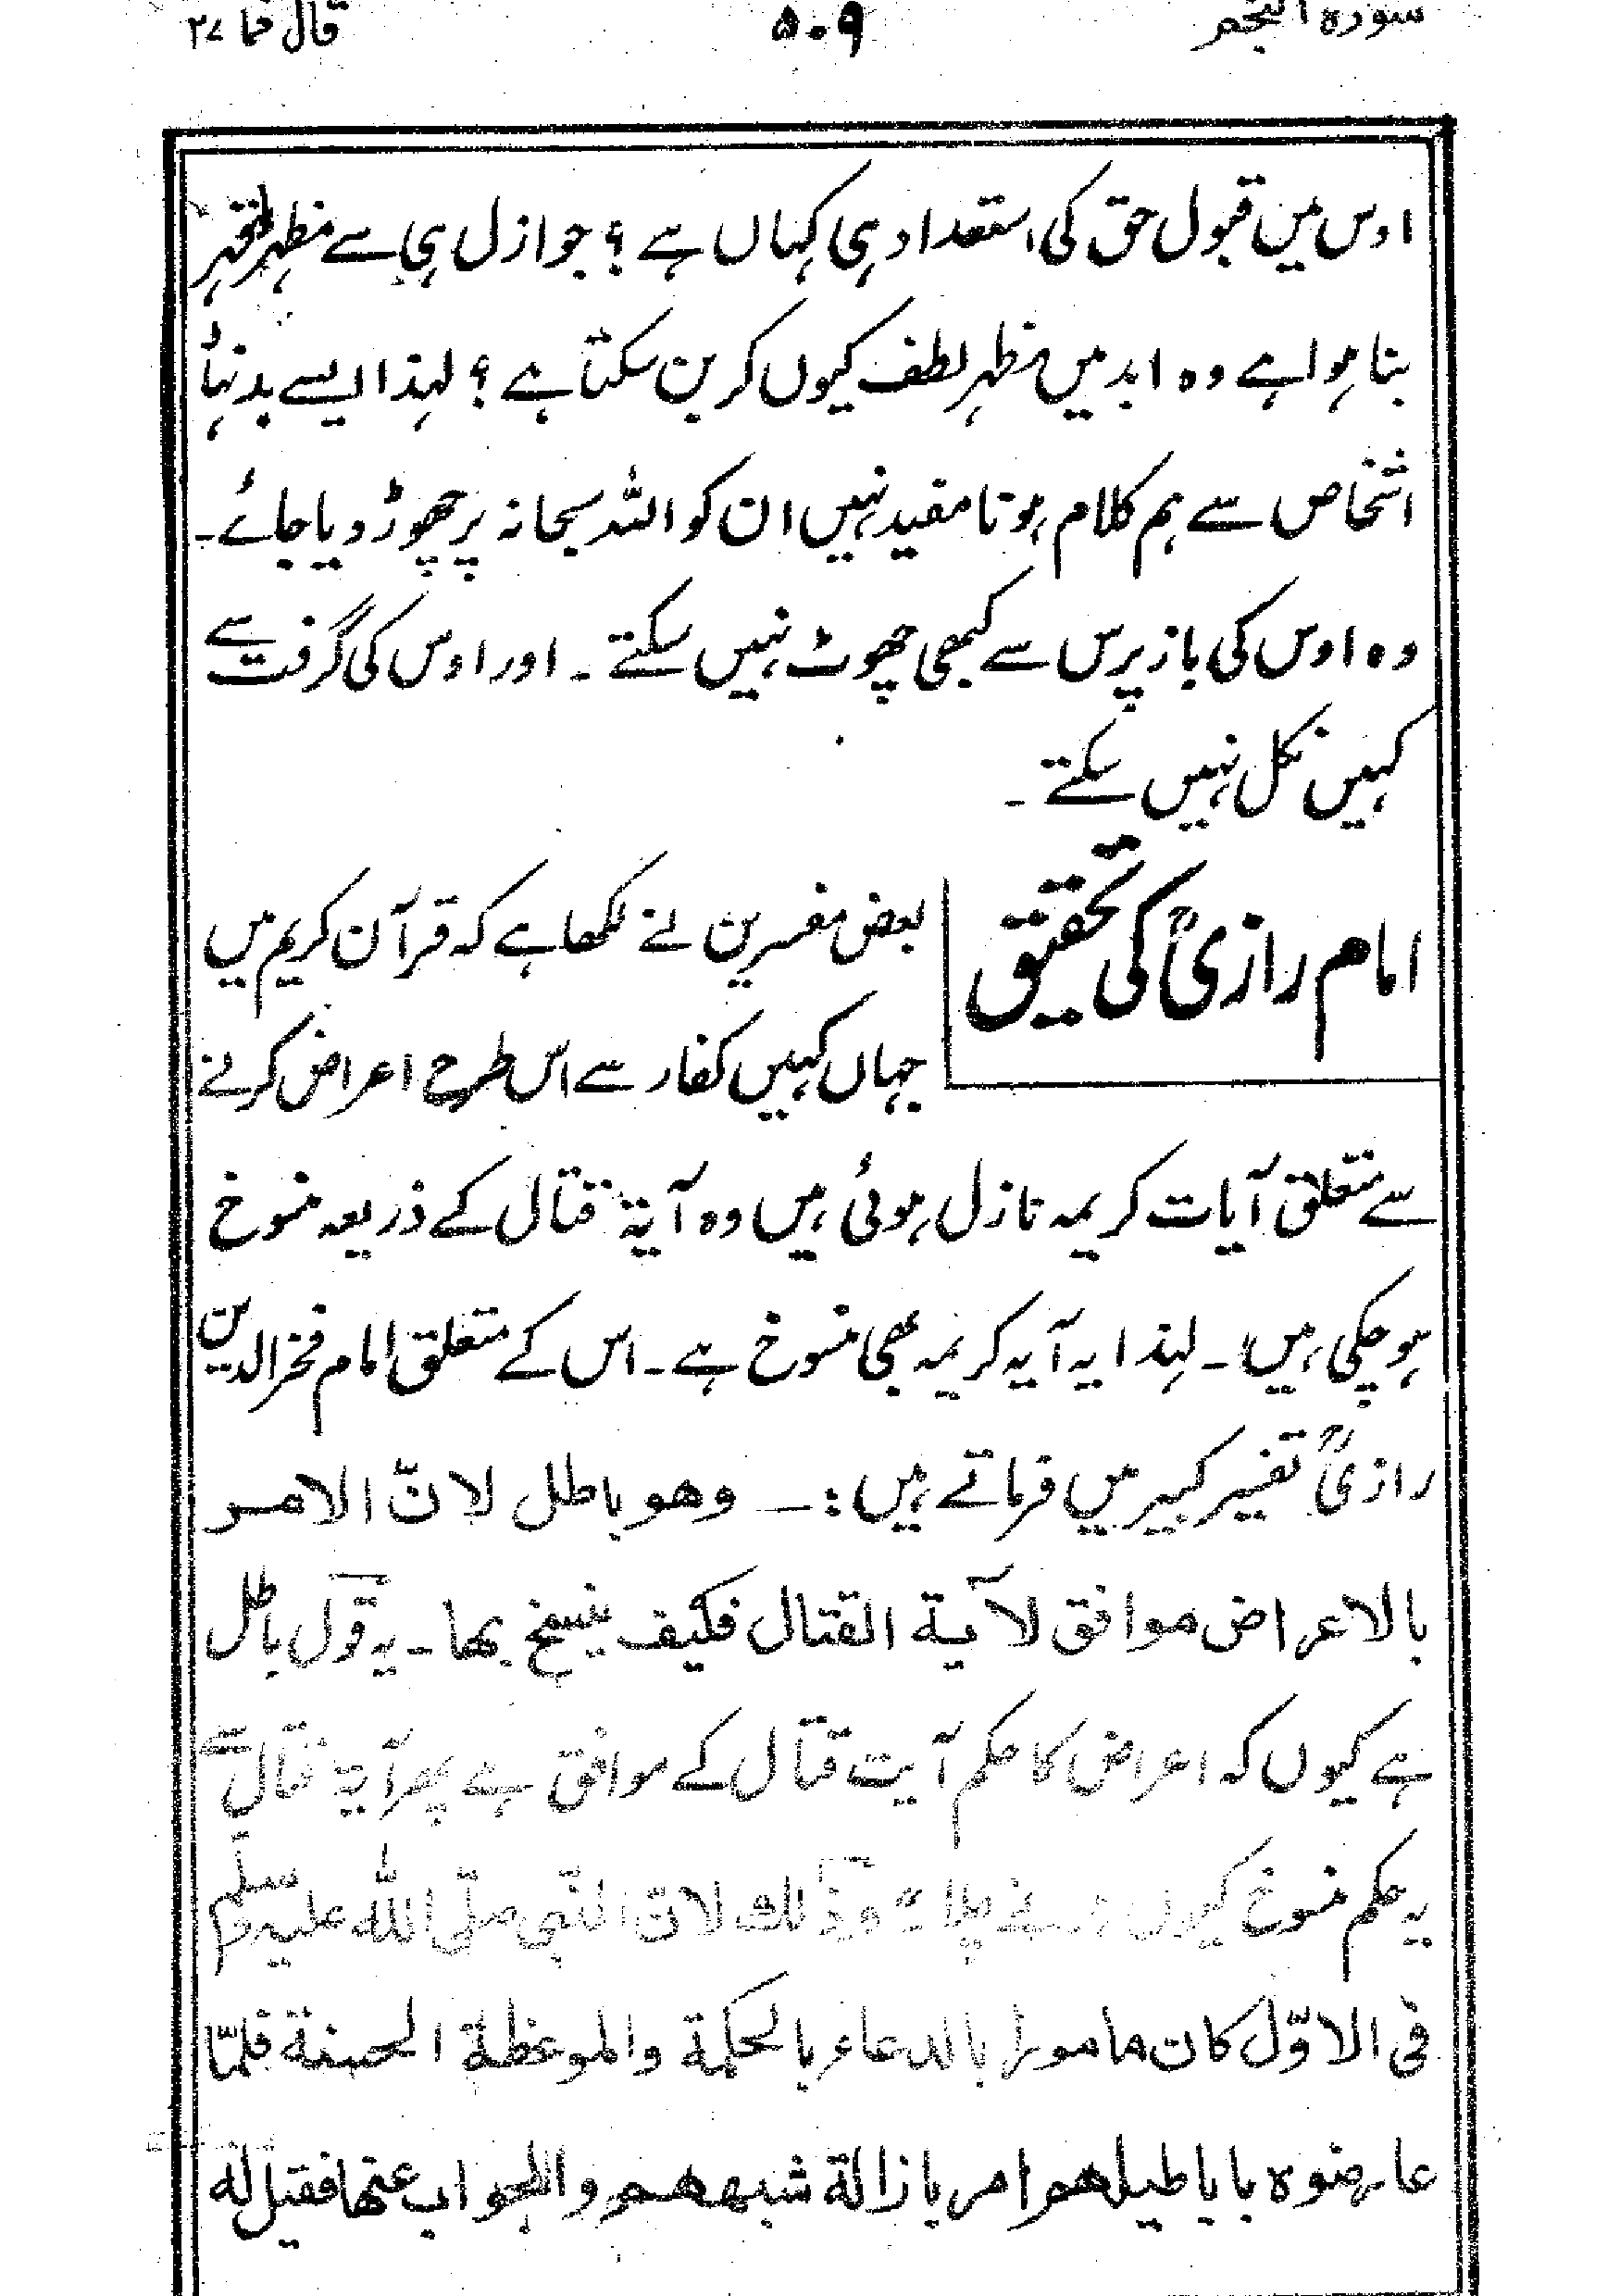 سورہ النجم ۵۰۹ قال فما ۲۷
اوس میں قبول حق کی استعداد ہی کہاں ہے ؟ جو ازل ہی سے مظہر قہر
بنا ہوا ہے وہ ابد میں مظہر لطف کیوں کر بن سکتا ہے ؟ لہذا ایسے بدنہا
اشخاص سے ہم کلام ہونا مفید نہیں ان کو اللہ سبحانہ پر چھوڑ دیا جائے۔
وہ اوس کی باز پرس سے کبھی چھوٹ نہیں سکتے ۔ اور اوس کی گرفت سے
کہیں نکل نہیں سکتے ۔
امام رازیؒ کی تحقیق
بعض مفسرین نے لکھا ہے کہ قرآن کریم میں
جہاں کہیں کفار سے اس طرح اعراض کرنے
سے متعلق آیات کریمہ نازل ہوئی ہیں وہ آیۃ قتال کے ذریعہ منسوخ
ہو چکی ہیں"۔ لہذا یہ آیہ کریمہ بھی منسوخ ہے۔ اس کے متعلق امام فخر الدین
رازیؒ تفسیر کبیر میں فرماتے ہیں :۔ وھو باطل لانّ الامر
بالاعراض موافق لآیۃ القتال فکیف ینسخ بھا۔ یہ قول باطل
ہے کیوں کہ اعراض کا حکم آیت قتال کے موافق ہے پھر آیۃ قتال سے
یہ حکم منسوخ کیوں ہونے چلا؟ وذٰلک لان النّبی صلّی اللہ علیہ وسلم
فی الاوّل کان مامورا بالدعاء بالحکمۃ والموعظۃ الحسنۃ فلمّا
عارضوہ باباطیلھم امر بازالۃ شبھھم والجواب عنھا فقیل لہ